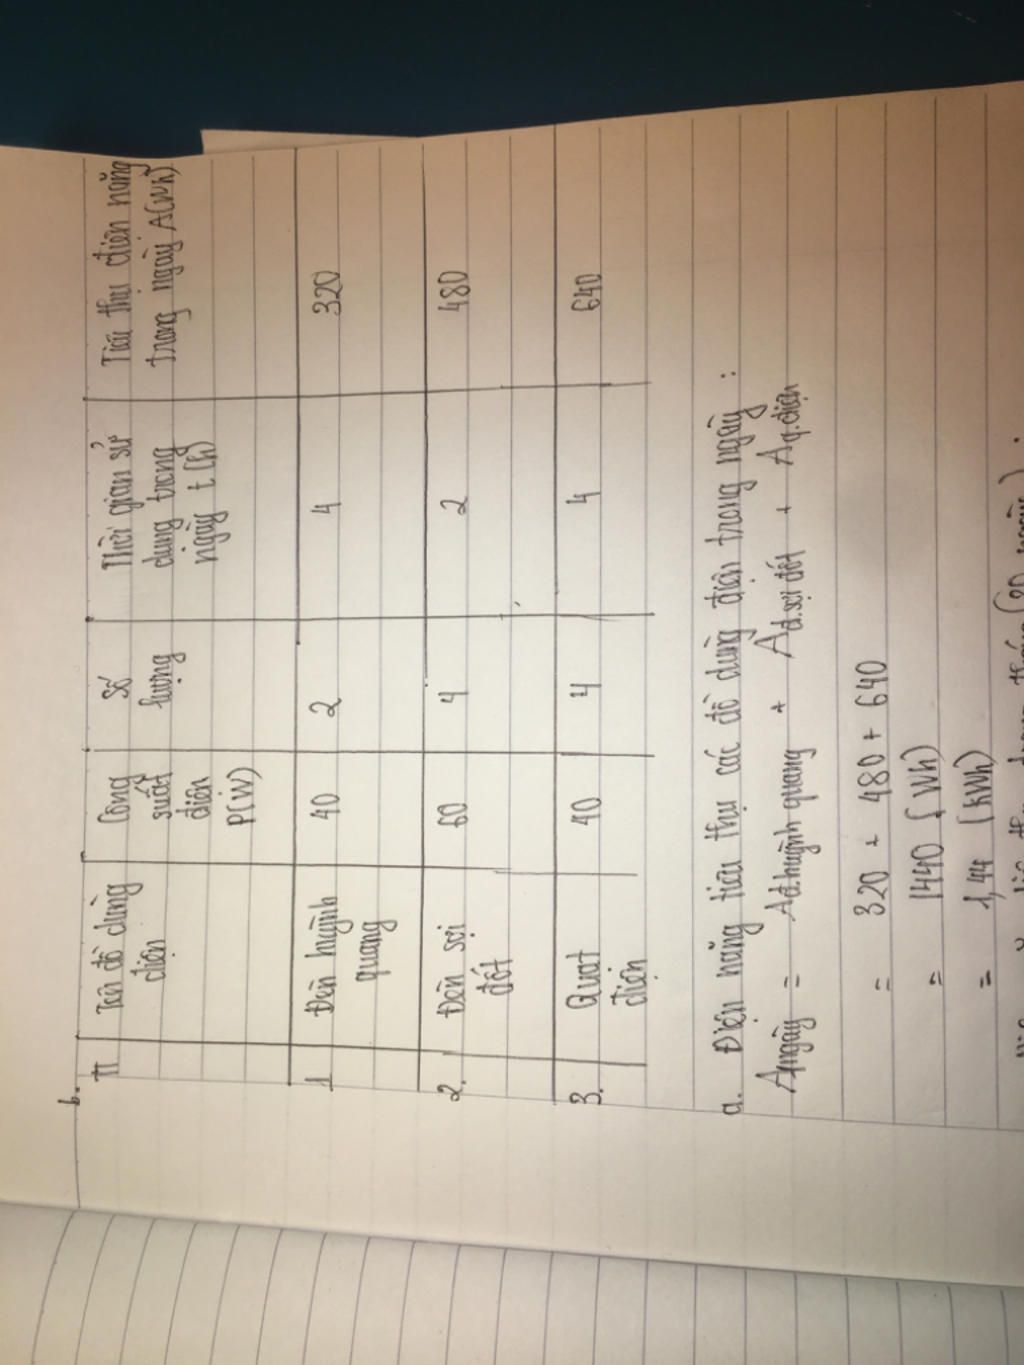 b.
TT Tên đồ dùng điện Công suất điện P(W) Số lượng Thời gian sử dụng trong ngày t (h) Tiêu thụ điện năng trong ngày A(Wh)
1 Đèn huỳnh quang 40 2 4 320
2. Đèn sợi đốt 60 4 2 480
3. Quạt điện 40 4 4 640
a. Điện năng tiêu thụ các đồ dùng điện trong ngày :
Angày = Ađ.huỳnh quang + Ađ.sợi đốt + Aq.điện
= 320 + 480 + 640
= 1440 (Wh)
= 1,44 (kWh)